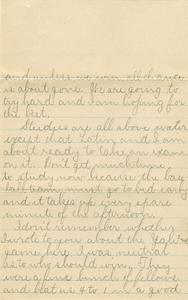 and unless we win all chance
is about gone. We are going to
try hard and I am hoping for
the best.
Studies are all above water
except that Latin, and I am
about ready to take an exam
on it. Don't get much time
to study now because the base
ball team must go to bed early
and it takes up every spare
minute of the afternoon.
I don't remember whether
I wrote to you about the Yale
game here. I was neutral
as to who should win. They
were a fine bunch of fellows
and beat us 4 to 1 in a good